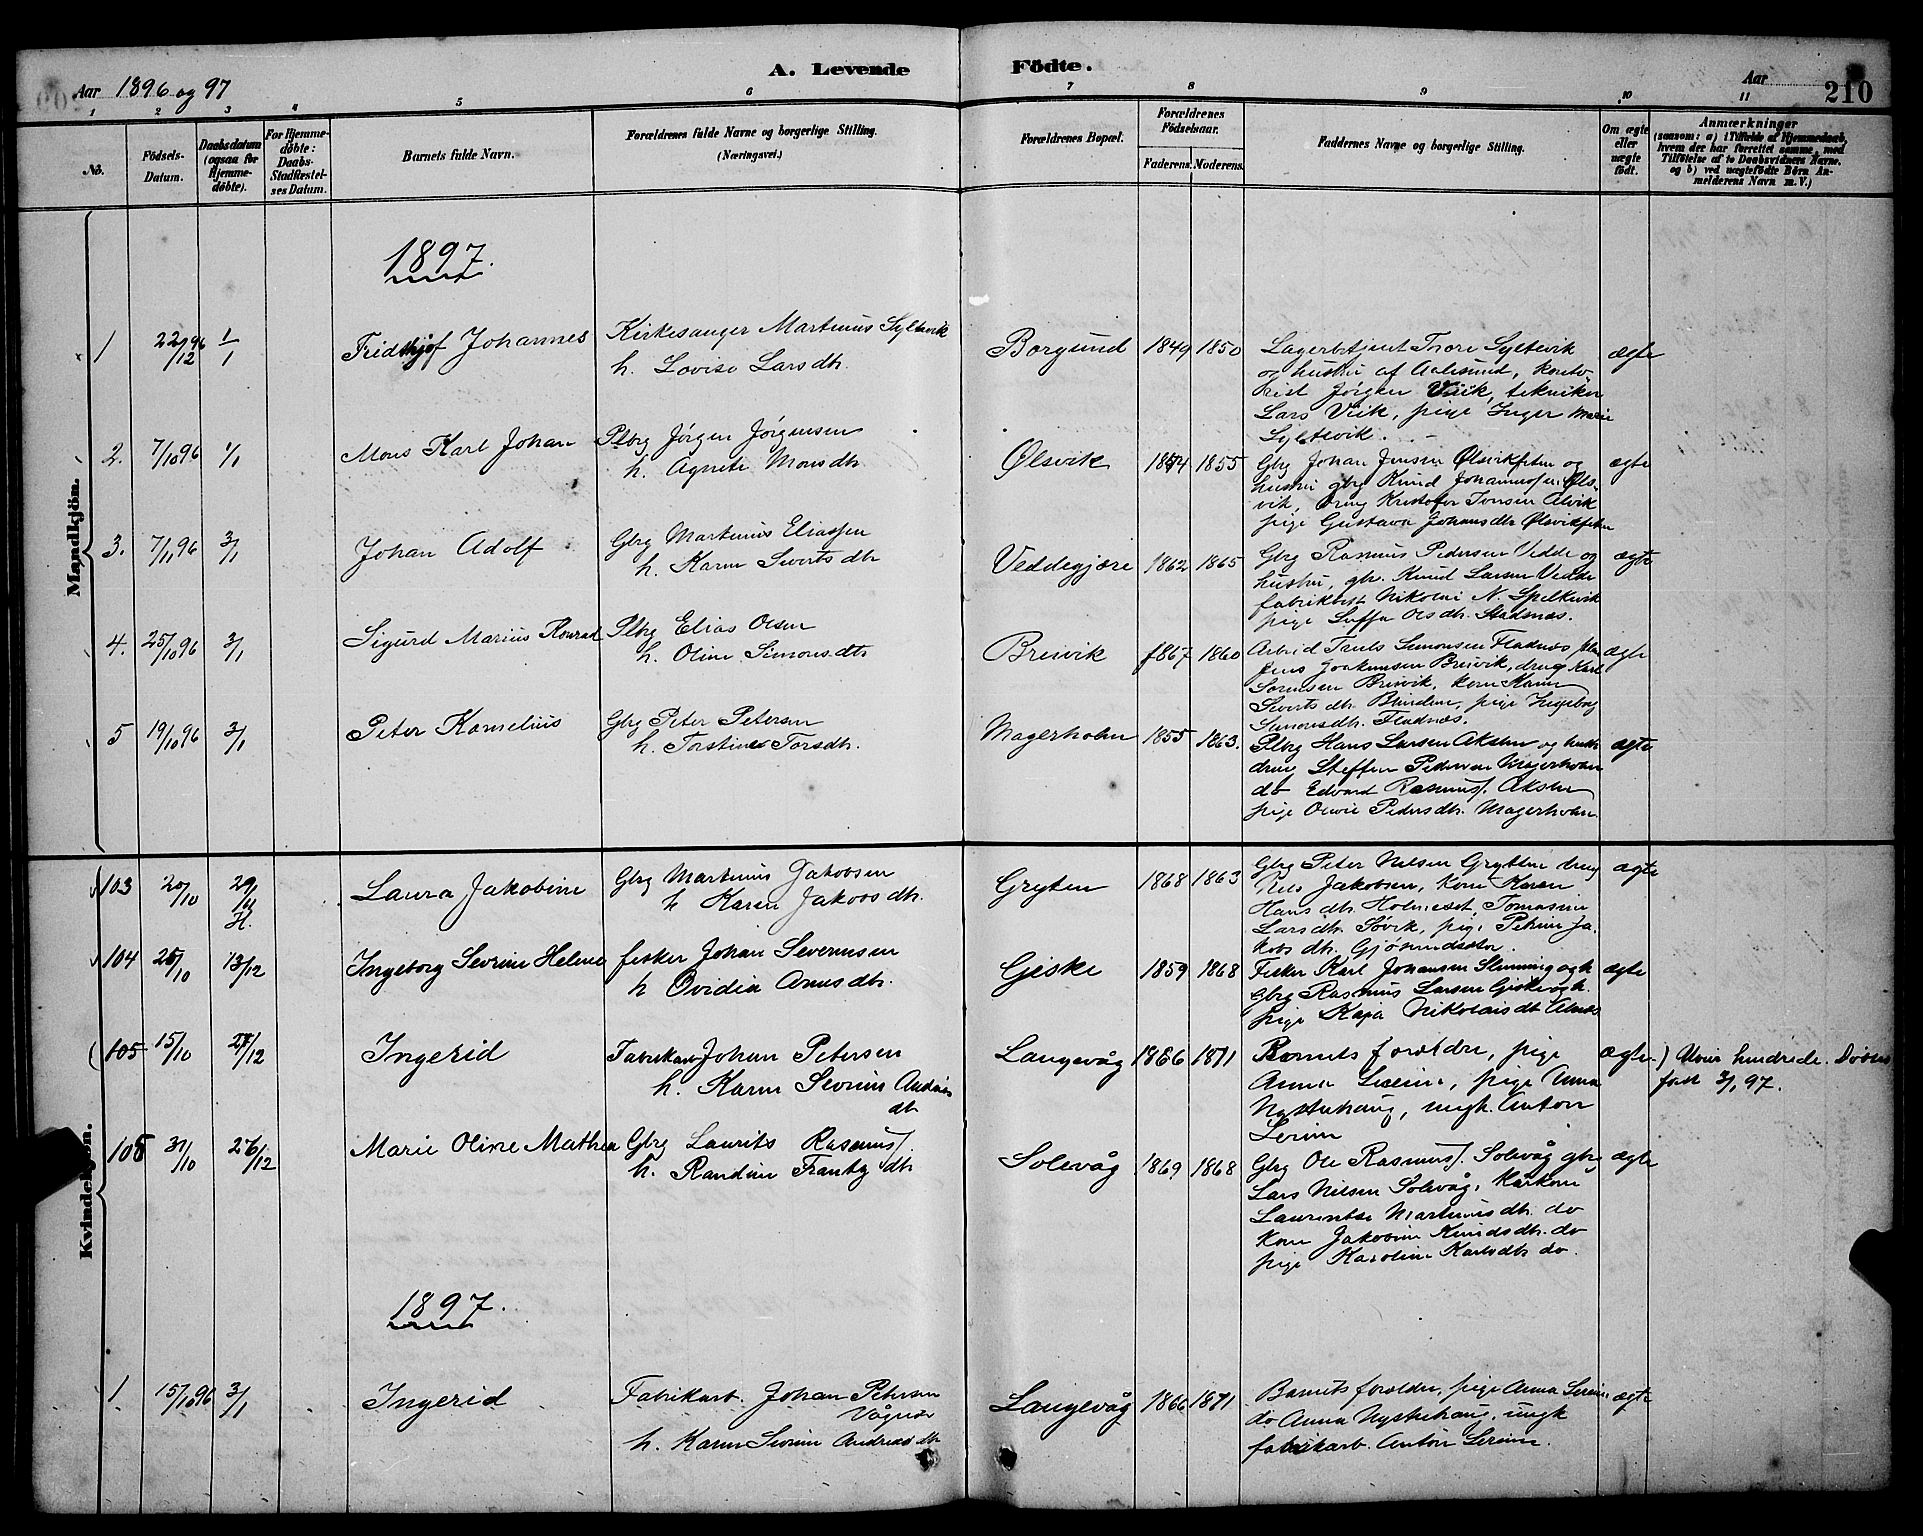 A. Levende Födte.
Aar 1896 og 97
Aar
210
1 2 3 4 5 6 7 8 9 10 11
No.
Födsels-Datum.
Daabsdatum (ogsaa for Hjemme-döbte).
For Hjemme-döbte: Daabs-Stadfæstel-ses Datum.
Barnets fulde Navn.
Forældrenes fulde Navne og borgerlige Stilling. (Næringsvei.)
Forældrenes Bopæl.
Forældrenes Födselsaar.
Faderens. Moderens.
Faddernes Navne og borgerlige Stilling.
Om ægte eller uægte födt.
Anmærkninger
(saasom: a) i Tilfælde af Hjemmedaab, hvem der har forrettet samme, med Tilföielse af to Daabsvidners Navne. og b) ved uægtefödte Börn Anmelderens Navn m. V.)
Mandkjön.
1897.
1 22/12 96 1/1 Fridthjof Johannes
Kirkesanger Martinus Syltevik
h. Lovise Larsdh.
Borgund 1849 1850
Lagerbetjent Tore Syltevik
og hustru af Aalesund, konto-
rist Jørgen Viik, tekniker
Lars Viik, pige Inger Marie
Syltevik.
ægte
2. 7/10 96 1/1 Mons Karl Johan
Plbrg Jørgen Jørgensen
h. Agnete Monsdh.
Ølsvik 1854 1855
Gbrg Johan Jensen Ølsvikfeten og
hustru gbrg Knud Johannesen Øls-
vik, dreng Kristofer Jonsen Alvik
pige Gustava Johansdh. Ølsvikfeten
ægte
3. 7/11 96 3/1 Johan Adolf
Gbrg Martinus Eliassen
h. Karen Sivertsdh
Veddegjære 1862 1865
Gbrg Rasmus Pedersen Vedde og
hustru, gbr. Knud Larsen Vedde
fabrikbest Nikolai N. Spelkevik
pige Olsdh. Stadsnæs.
ægte
4. 25/10 96 3/1 Sigurd Marius Konrad
Plbrg Elias Olsen
h. Oline Simonsdh
Breivik 1867 1860
Arbeid Truls Simonsen Fladnæs
Jens Joakimsen Breivik, dreng Karl
Sørensen Breivik, kone Karen
Sivertsdh. Blindem, pige Ingeborg
Simonsdh. Fladnæs.
ægte
5 19/10 96 3/1 Peter Kornelius
Gbrg Peter Petersen
h. Torstine Torsdh.
Magerholm 1855 1863.
Plbrg Hans Larsen Akslen og hustru
dreng Steffen Pedersen Magerholm
do Edvard Rasmus/. Akslen
pige Olivie Pedersdh. Magerholm.
ægte
Kvindekjön.
103 20/10 29/11 H. Laura Jakobine
Gbrg Martinus Jakobsen
h Karen Jakobsdh.
Gryten 1868 1863
Gbrg Peter Nilsen Gryten dreng
Nils Jakobsen, kone Karen
Hansdh. Holmeset, Tomasine
Larsdh. Søvik, pige Petrine Ja-
kobsdh. Gjøsundsæter.
ægte
104 25/10 13/12 Ingeborg Sevrine Helene
fisker Johan Severinsen
h Ovidia Arnesdh.
Giske 1859 1868
Fisker Karl Johansen Slinning og h
gbrg Rasmus Larsen Giske og h.
pige Kaja Nikolaisdt Alnæs
ægte
105 15/10 27/12 Ingerid
Fabrikarb Johan Petersen
h. Karen Sevrine Andreas
dh
Langevåg 1866 1871
Barnets foreldre, pige
Anna Sereine, pige Anna
Nystuhaug, ungk. Anton
Serein
ægte
) Uvis hundrede. Døbes
født 3/1 97.
105 31/10 26/12 Marie Oline Mathea
Gbrg Laurits Rasmus/.
h. Randine Frantzdh
Solevåg 1869 1868
Gbrg Ole Rasmus/. Solevåg gbr
Lars Nilsen Solevåg, kårkone
Laurentse Martinusdh. do
kone Jakobine Knudsdh. do
pige Karoline Karlsdh do.
ægte
1897.
1. 15/10 96 3/1 Ingerid
Fabrikarb. Johan Petersen
Vågnes
h. Karen Sevrine Andreasdh
Langevåg 1866 1871
Barnets foreldre, pige Anna Serein
do Anna Nystuhaug, ungk
fabrikarb. Anton Serein.
ægte